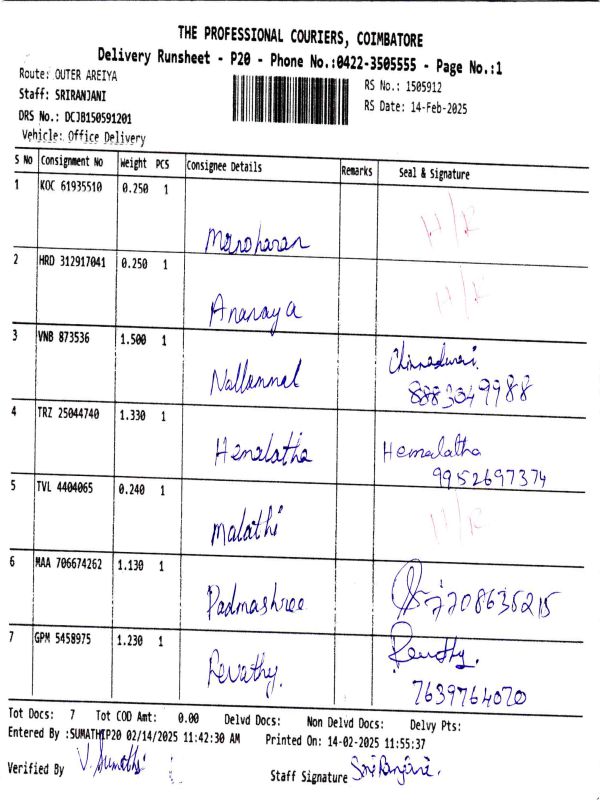 THE PROFESSIONAL COURIERS, COIMBATORE
Delivery Runsheet - P20 - Phone No.:0422-3505555 - Page No.:1
Route: OUTER AREIYA
RS No.: 1505912
Staff: SRIRANJANI
RS Date: 14-Feb-2025
DRS No.: DCJB150591201
Vehicle: Office Delivery
S No Consignment No Weight PCS Consignee Details Remarks Seal & Signature
1 KOC 61935510 0.250 1
Manoharan H/R
2 HRD 312917041 0.250 1
Ananaya H/R
3 VNB 873536 1.500 1 Chinnadurai.
Nallammal
4 TRZ 25044740 1.330 1
Hemalatha Hemalatha
9952697374
5 TVL 4404065 0.240 1
Malathi H/R
6 MAA 706674262 1.130 1
Padmashree
7 GPM 5458975 1.230 1 Revathy.
Revathy. 7639764020
Tot Docs: 7 Tot COD Amt: 0.00 Delvd Docs: Non Delvd Docs: Delvy Pts:
Entered By :SUMATHIP20 02/14/2025 11:42:30 AM Printed On: 14-02-2025 11:55:37
Verified By V. Sumathi
Staff Signature SriRanjani.